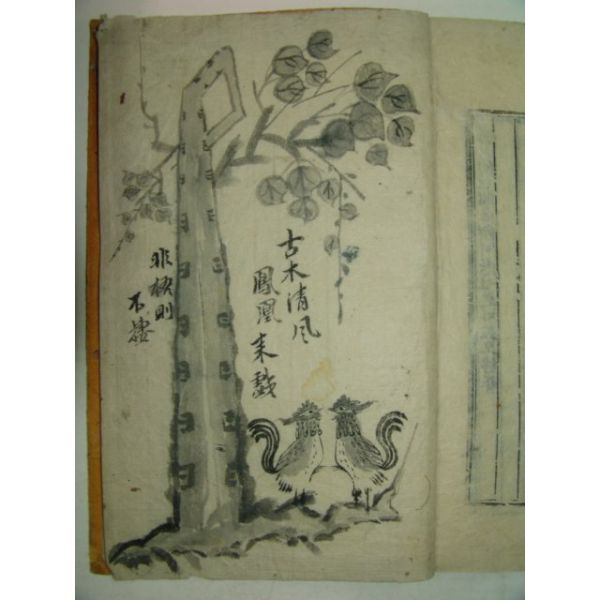 古木清風
鳳凰来戱
非梧則
不棲